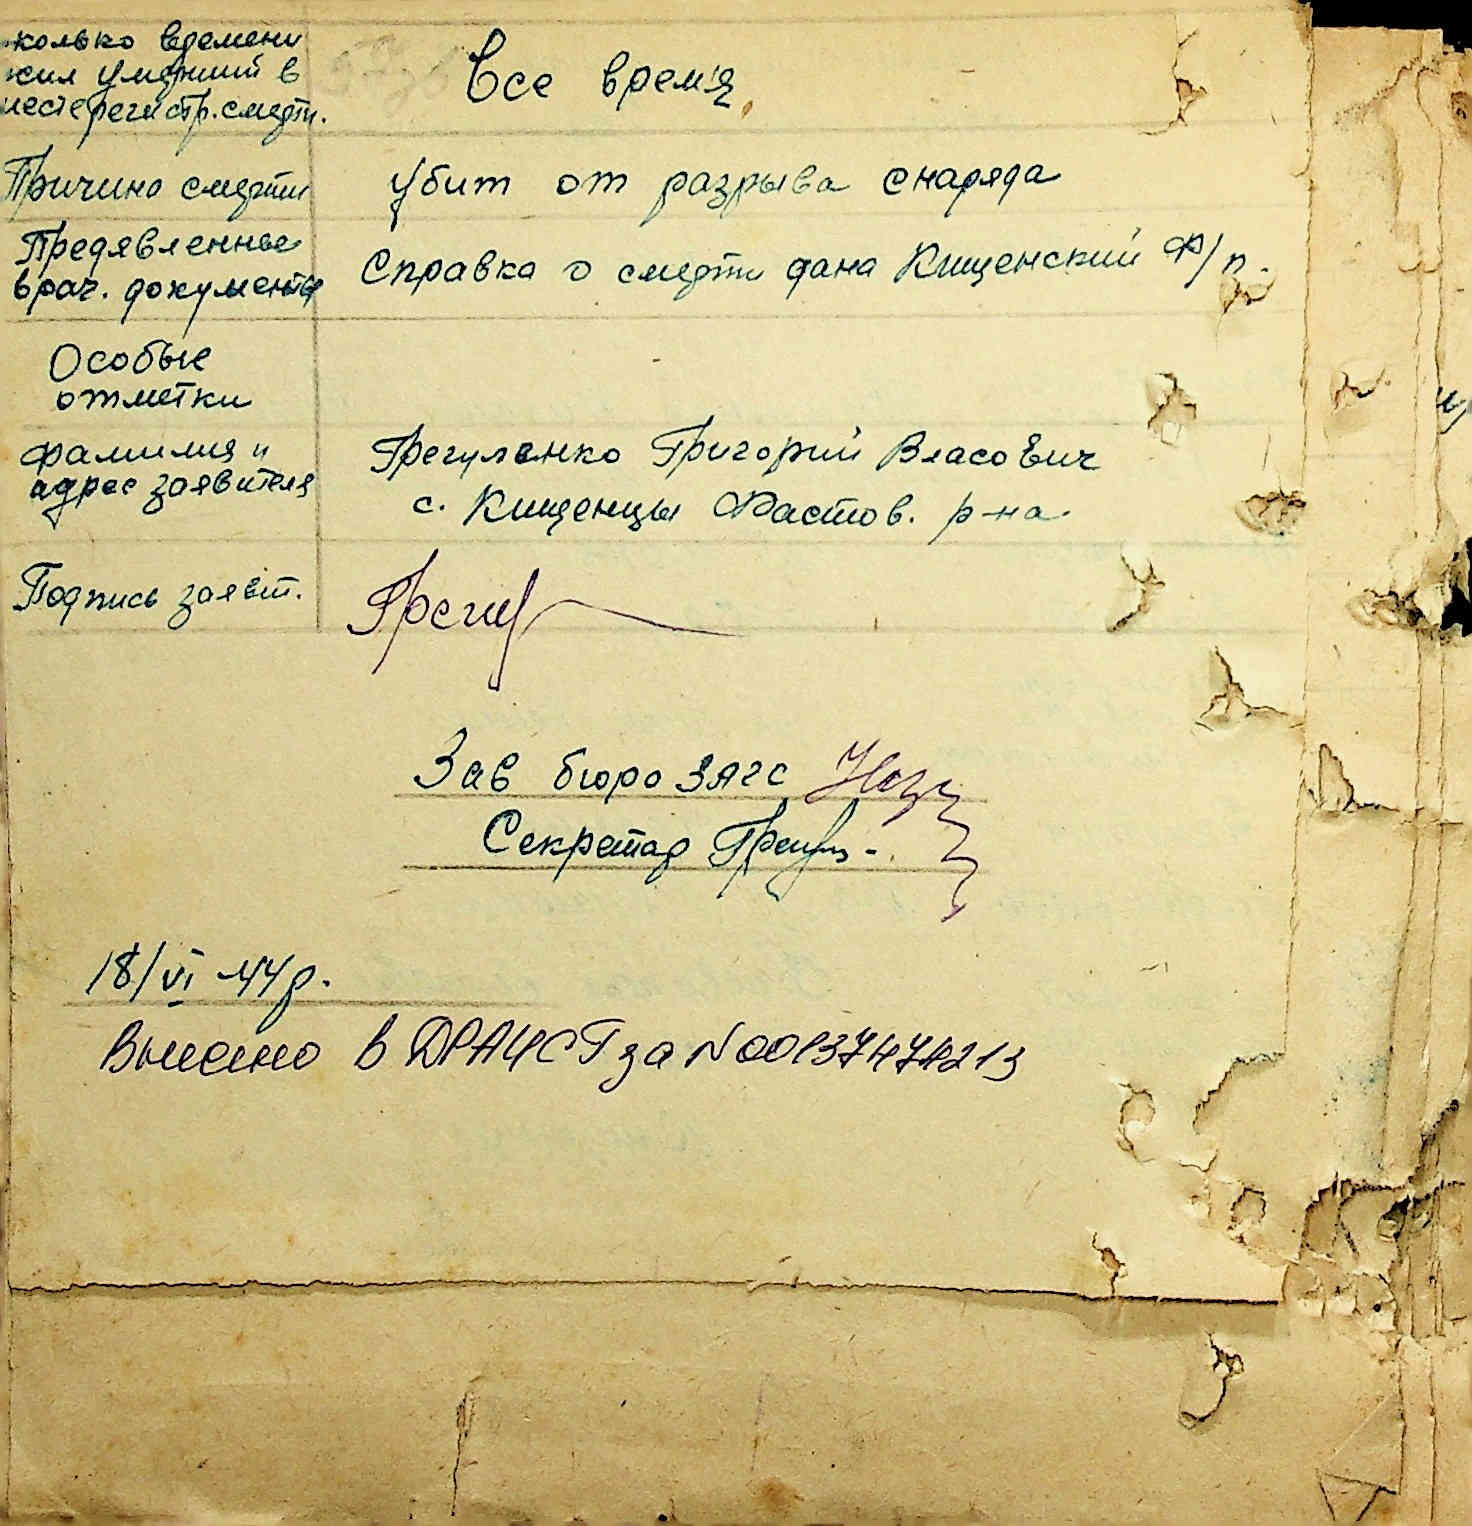 колько времени
жил умерший в
месте регистр. смерти.
Все время
Причина смерти
убит от разрыва снаряда
Предявленные
врач. документы
Справка о смерти дана Кищенский ф/п.
Особые
отметки
-
фамилия и
адрес заявителя
Грегуленко Григорий Власович
с. Кищенцы Фастов. р-на.
Подпись заявит.
Зав бюро ЗАГС
Секретар
18/VI 44 р.
Внесено в ДРАЦСГ за N 00137474213